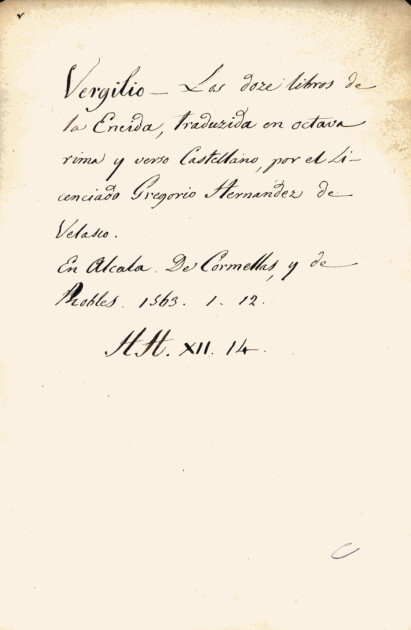 Vergilio — Los doze libros de
la Eneida, traduzida en octava
rima y verso Castellano, por el Li-
cenciado Gregorio Hernandez de
Velasco.
En Alcala. De Cormellas, y de
Robles. 1563. 1. 12.
HH. XII. 14.